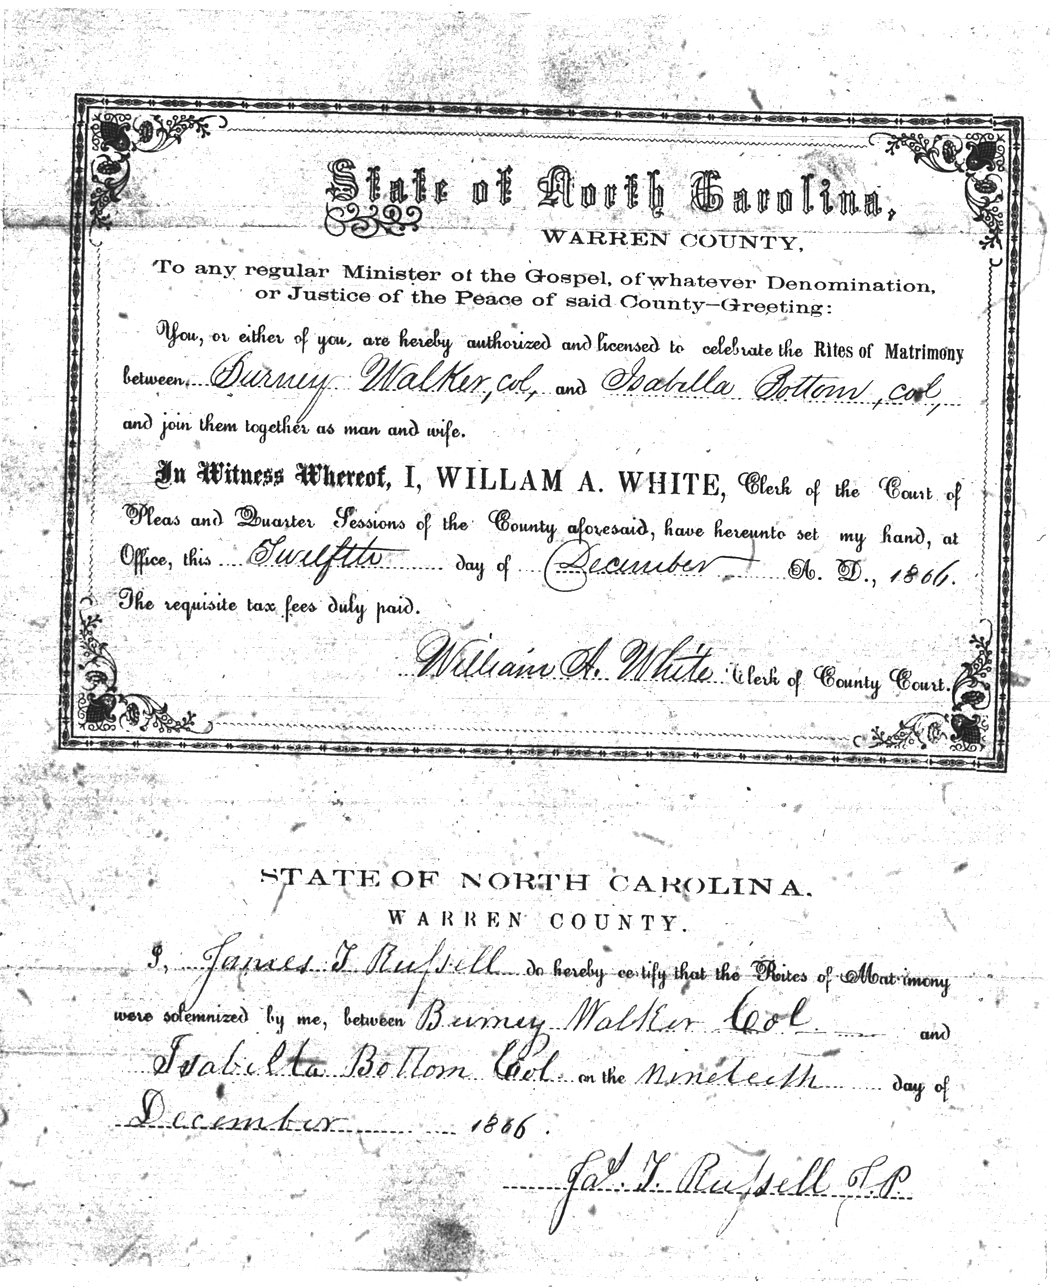 State of North Carolina,
WARREN COUNTY,
To any regular Minister of the Gospel, of whatever Denomination,
or Justice of the Peace of said County—Greeting:
You, or either of you, are hereby authorized and licensed to celebrate the Rites of Matrimony
between Burney Walker, col, and Isabella Bottom, col,
and join them together as man and wife.
In Witness Whereof, I, WILLAM A. WHITE, Clerk of the Court of
Pleas and Quarter Sessions of the County aforesaid, have hereunto set my hand, at
Office, this Twelfth day of December A. D., 1866.
The requisite tax fees duly paid.
William A. White Clerk of County Court.
STATE OF NORTH CAROLINA.
WARREN COUNTY.
I, James T Russell do hereby certify that the Rites of Matrimony
were solemnized by me, between Burney Walker Col and
Isabella Bottom Col on the nineteeth day of
December 1866.
Jas. T. Russell J.P.